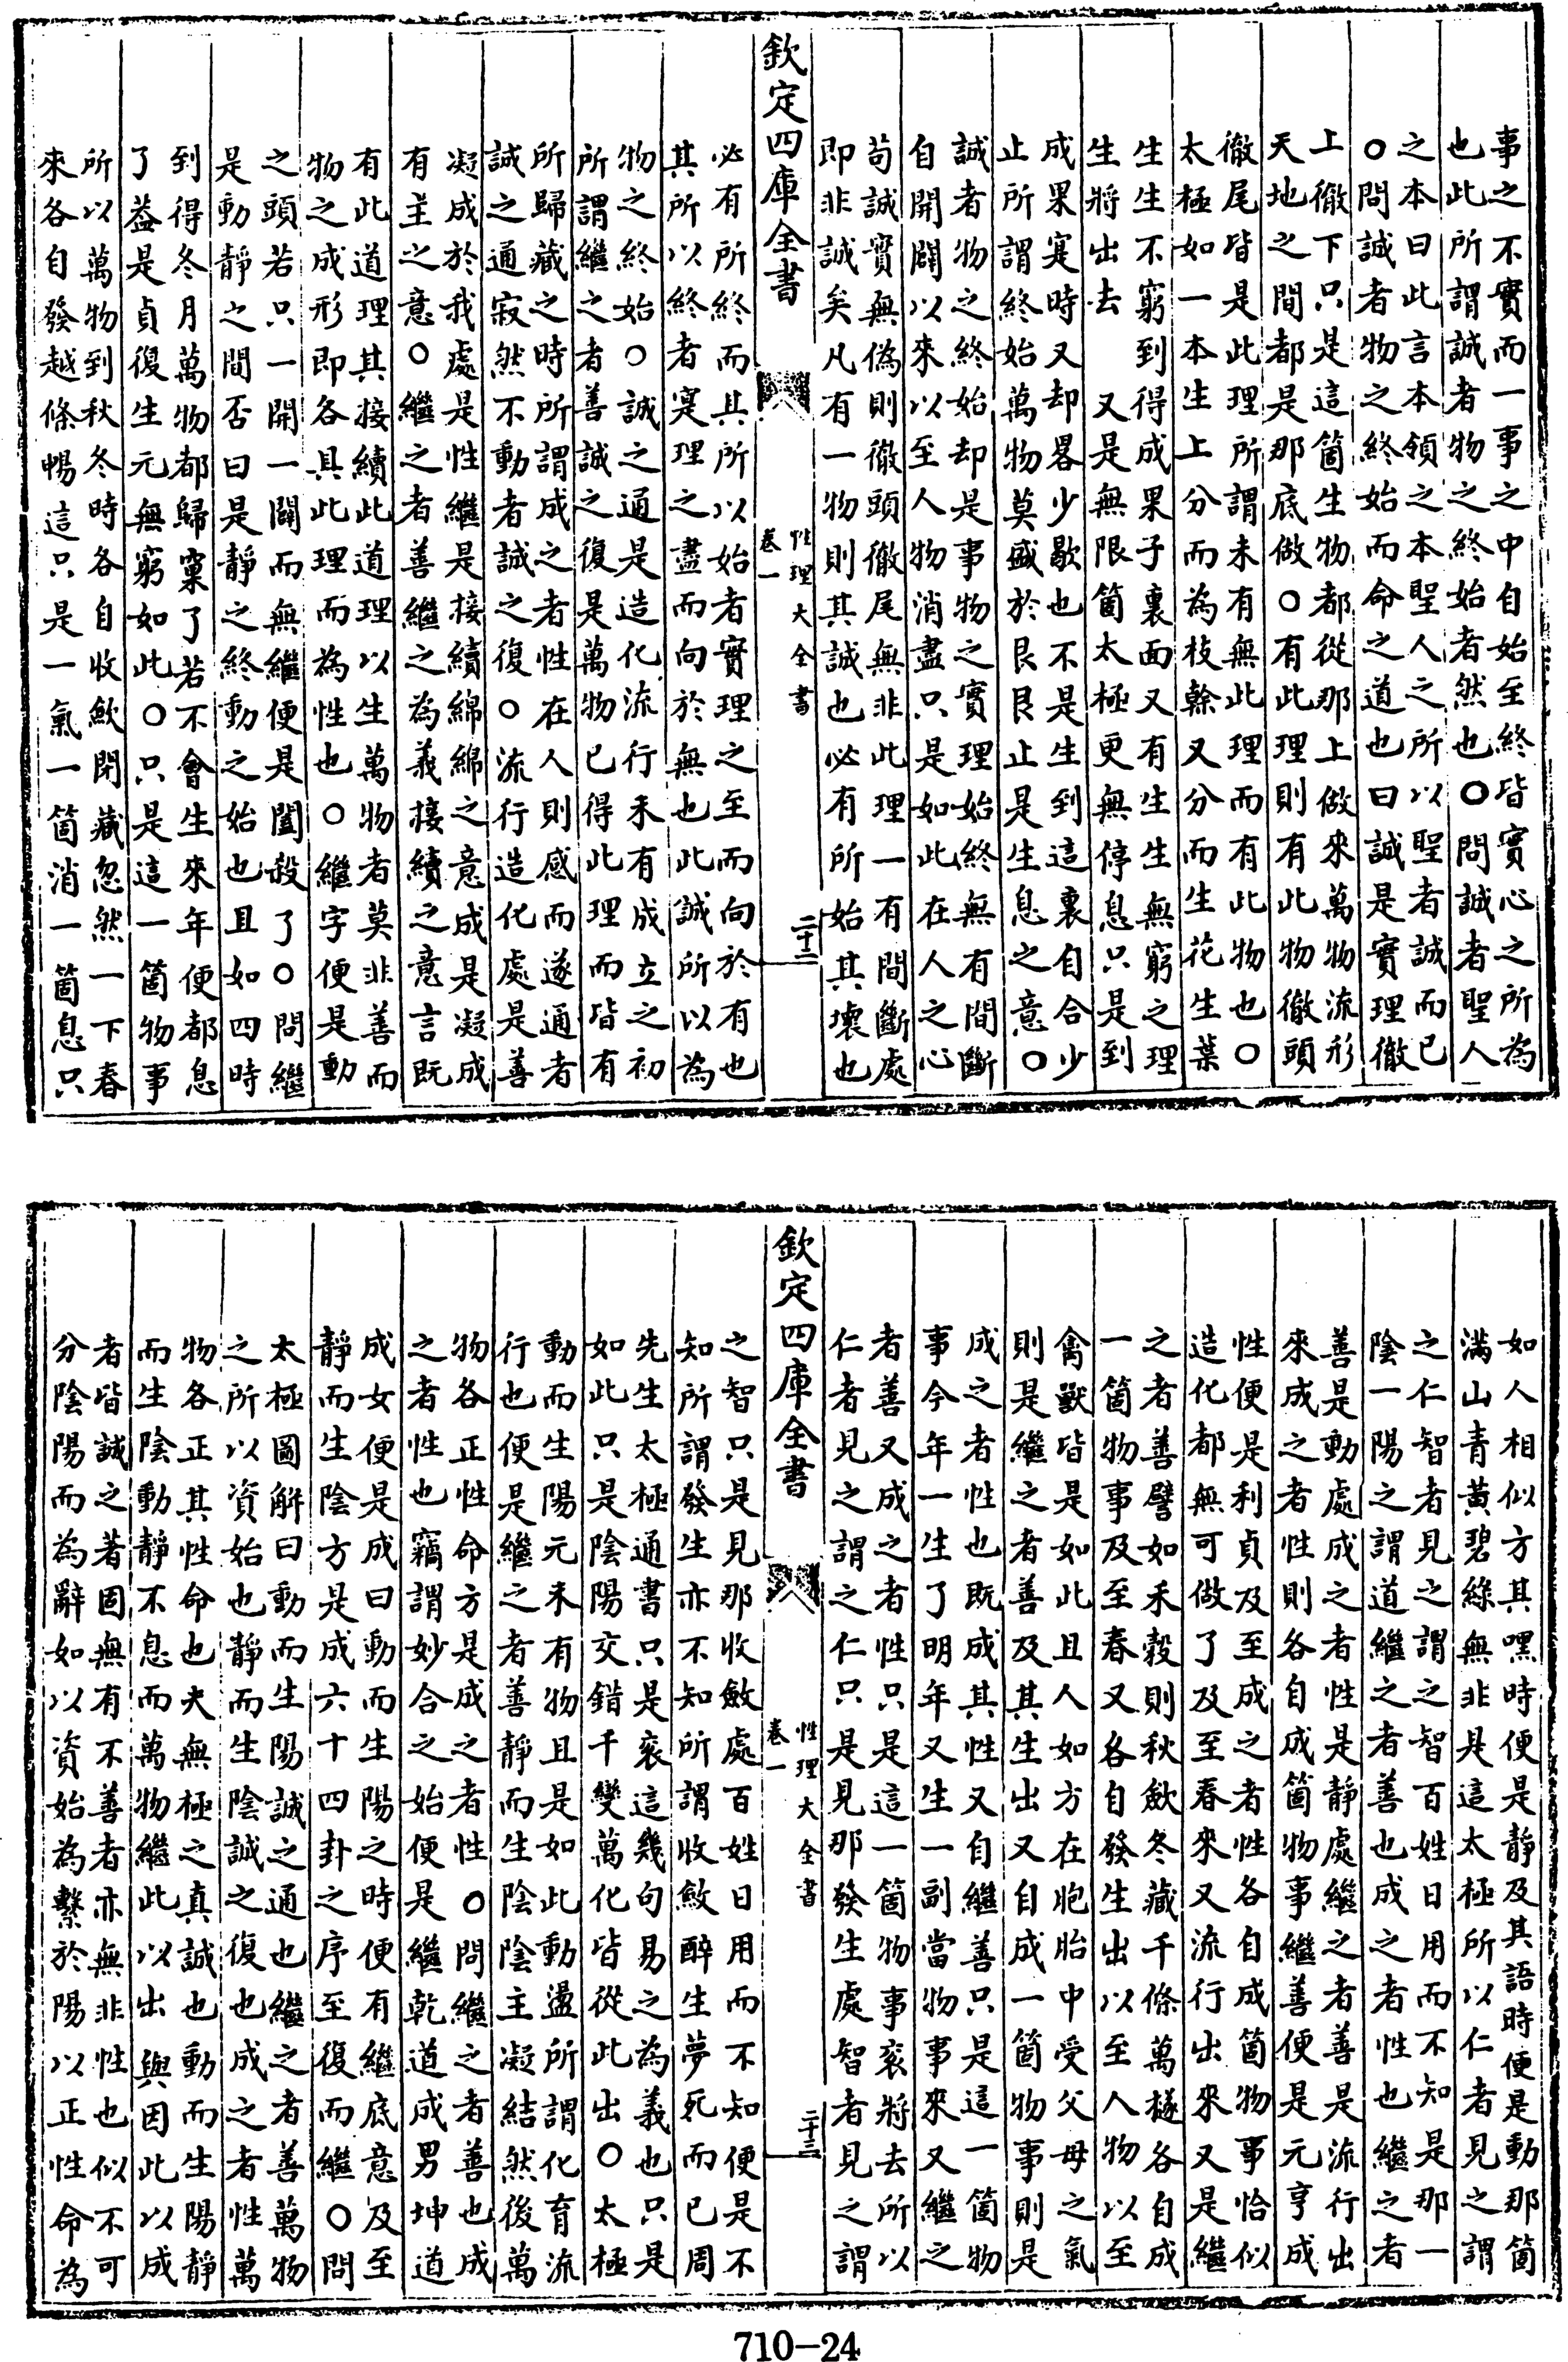 事之不實而一事之中自始至終皆實心之所為
也此所謂誠者物之終始者然也○問誠者聖人
之本曰此言本領之本聖人之所以聖者誠而已
○問誠者物之終始而命之道也曰誠是實理徹
上徹下只是這箇生物都從那上做來萬物流形
天地之間都是那底做○有此理則有此物徹頭
徹尾皆是此理所謂未有無此理而有此物也○
太極如一本生上分而為枝幹又分而生花生葉
生生不窮到得成果子裏面又有生生無窮之理
生將出去又是無限箇太極更無停息只是到
成果寔時又却畧少歇也不是生到這裏自合少
止所謂終始萬物莫盛於艮艮止是生息之意○
誠者物之終始却是事物之實理始終無有間斷
自開闢以來以至人物消盡只是如此在人之心
苟誠實無偽則徹頭徹尾無非此理一有間斷處
即非誠矣凡有一物則其誠也必有所始其壞也
欽定四庫全書
性理大全書
卷一
二十二
必有所終而其所以始者實理之至而向於有也
其所以終者寔理之盡而向於無也此誠所以為
物之終始○誠之通是造化流行未有成立之初
所謂繼之者善誠之復是萬物已得此理而皆有
所歸藏之時所謂成之者性在人則感而遂通者
誠之通寂然不動者誠之復○流行造化處是善
凝成於我處是性繼是接續綿綿之意成是凝成
有主之意○繼之者善繼之為義接續之意言既
有此道理其接續此道理以生萬物者莫非善而
物之成形即各具此理而為性也○繼字便是動
之頭若只一開一闢而無繼便是闔殺了○問繼
是動靜之間否曰是靜之終動之始也且如四時
到得冬月萬物都歸窠了若不會生來年便都息
了蓋是貞復生元無窮如此○只是這一箇物事
所以萬物到秋冬時各自收歛閉藏忽然一下春
來各自發越條暢這只是一氣一箇消一箇息只
如人相似方其嘿時便是靜及其語時便是動那箇
滿山青黄碧綠無非是這太極所以仁者見之謂
之仁智者見之謂之智百姓日用而不知是那一
陰一陽之謂道繼之者善也成之者性也繼之者
善是動處成之者性是靜處繼之者善是流行出
來成之者性則各自成箇物事繼善便是元亨成
性便是利貞及至成之者性各自成箇物事恰似
造化都無可做了及至春來又流行出來又是繼
之者善譬如禾穀則秋歛冬藏千條萬樾各自成
一箇物事及至春又各自發生出以至人物以至
禽獸皆是如此且人如方在胞胎中受父母之氣
則是繼之者善及其生出又自成一箇物事則是
成之者性也既成其性又自繼善只是這一箇物
事今年一生了明年又生一副當物事來又繼之
者善又成之者性只是這一箇物事衮將去所以
仁者見之謂之仁只是見那發生處智者見之謂
欽定四庫全書
性理大全書
卷一
二十三
之智只是見那收斂處百姓日用而不知便是不
知所謂發生亦不知所謂收斂醉生夢死而已周
先生太極通書只是衮這幾句易之為義也只是
如此只是陰陽交錯千變萬化皆從此出○太極
動而生陽元未有物且是如此動盪所謂化育流
行也便是繼之者善靜而生陰陰主凝結然後萬
物各正性命方是成之者性○問繼之者善也成
之者性也竊謂妙合之始便是繼乾道成男坤道
成女便是成曰動而生陽之時便有繼底意及至
靜而生陰方是成六十四卦之序至復而繼○問
太極圖解曰動而生陽誠之通也繼之者善萬物
之所以資始也靜而生陰誠之復也成之者性萬
物各正其性命也夫無極之真誠也動而生陽靜
而生陰動靜不息而萬物繼此以出與因此以成
者皆誠之著固無有不善者亦無非性也似不可
分陰陽而為辭如以資始為繫於陽以正性命為
710-24